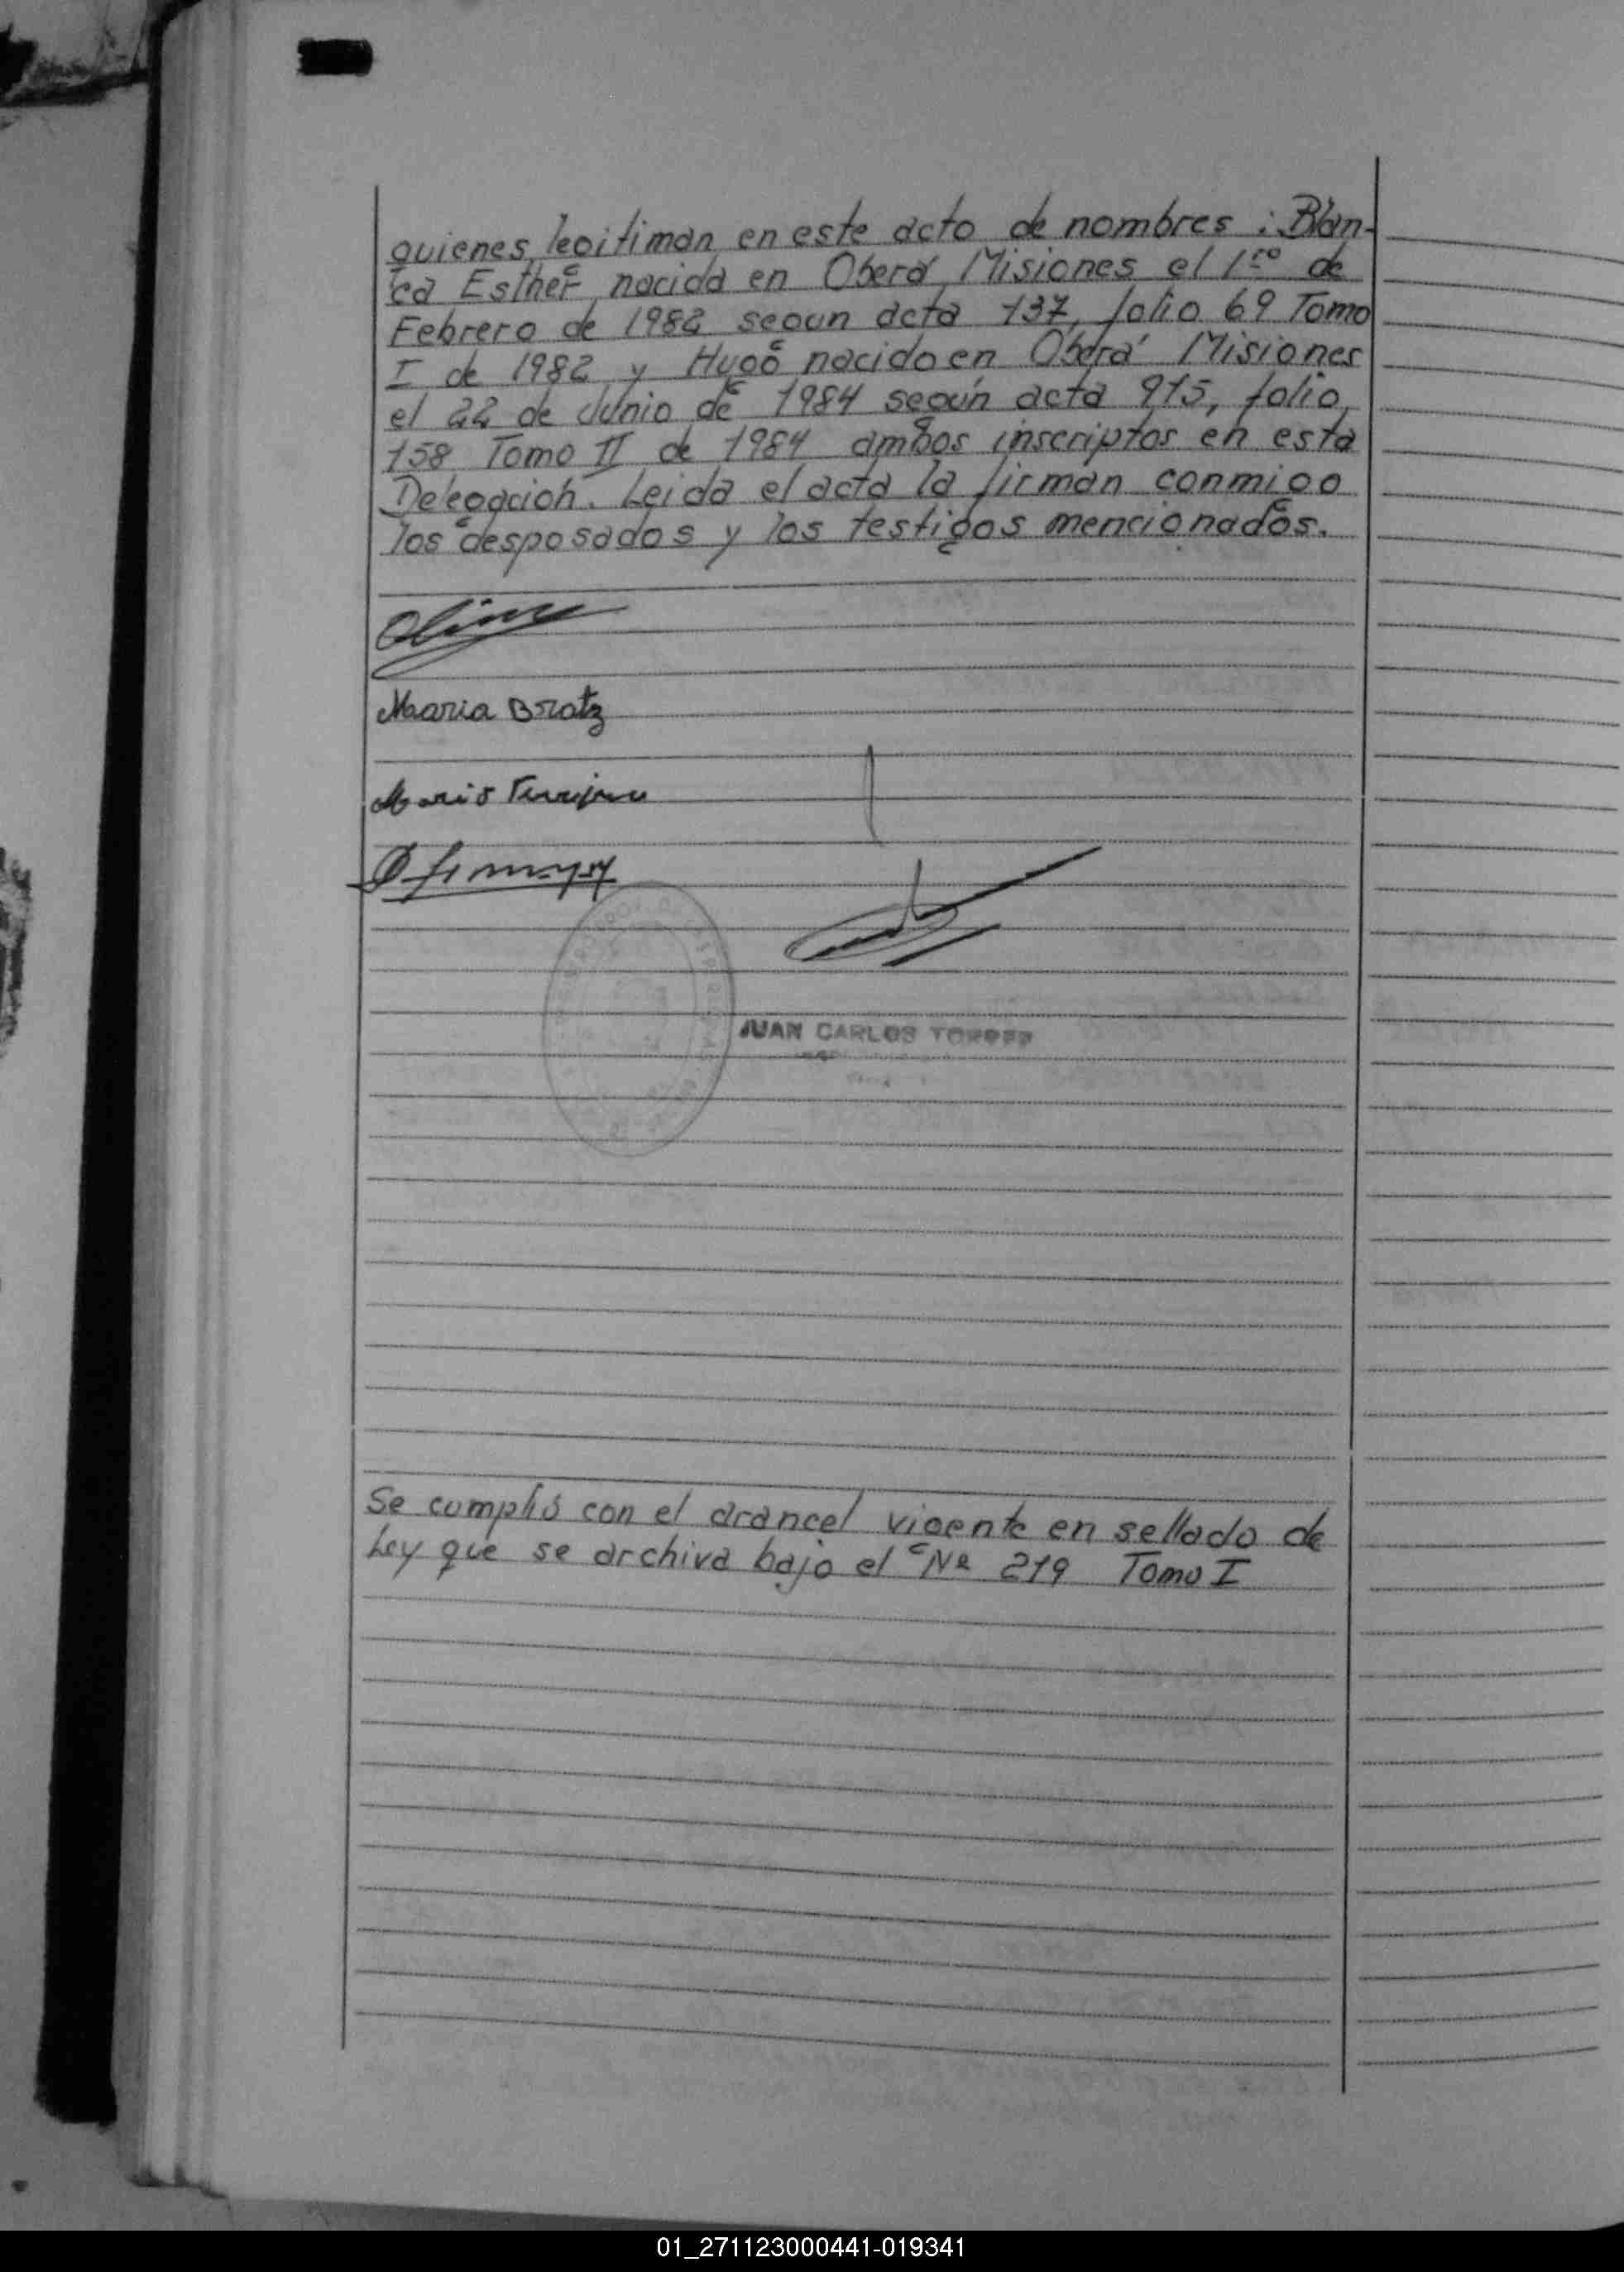 quienes legitiman en este acto de nombres: Blan-
ca Esther nacida en Oberá, Misiones el 1ro de
Febrero de 1982 segun acta 137, folio 69 Tomo
I de 1982 y Hugo nacido en Oberá Misiones
el 22 de Junio de 1984 según acta 915, folio
158 Tomo II de 1984 ambos inscriptos en esta
Delegacion. Leida el acta la firman conmigo
los desposados y los testigos mencionados.
Maria Bratz
Mario
JUAN CARLOS
Se cumplió con el arancel vigente en sellado de
Ley que se archiva bajo el Nº 219 Tomo I
01_271123000441-019341